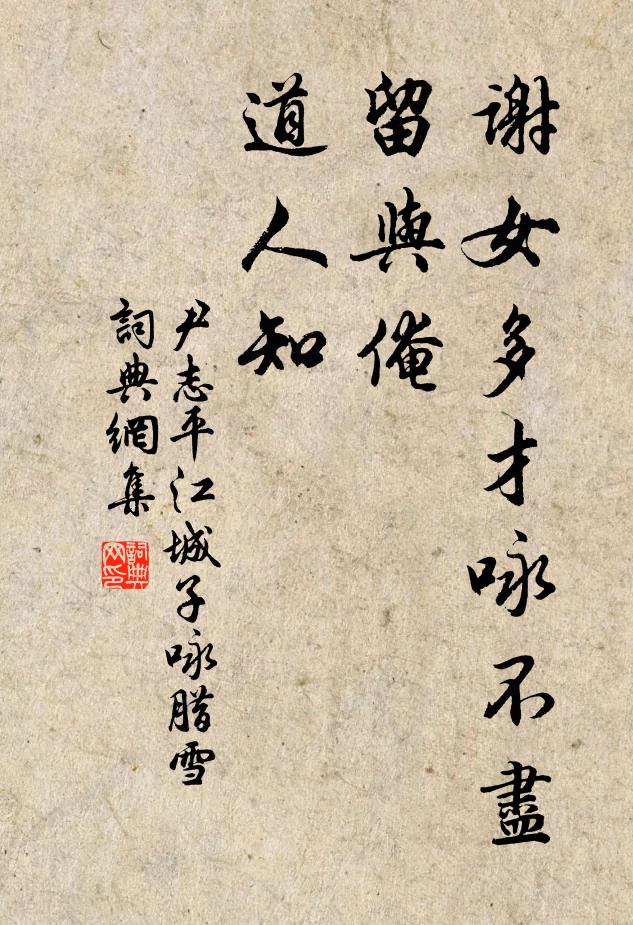 謝女多才咏不盡
留與俺
道人知
尹志平江城子咏腊雪
詞典網集
詞典网印